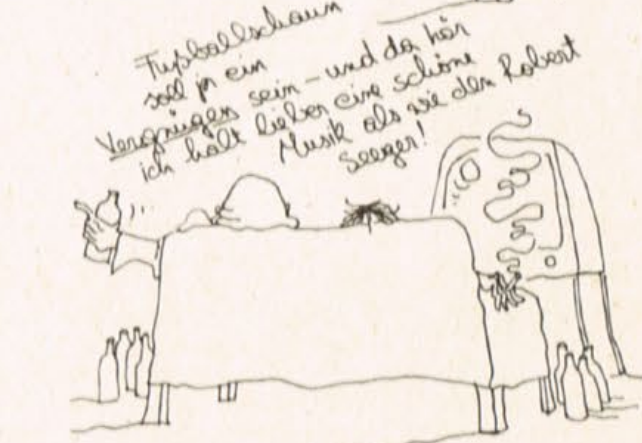 Fußballschaun
soll ja ein
Vergnügen sein – und da hör
ich halt lieber eine schöne
Musik als wie den Robert
Seeger!